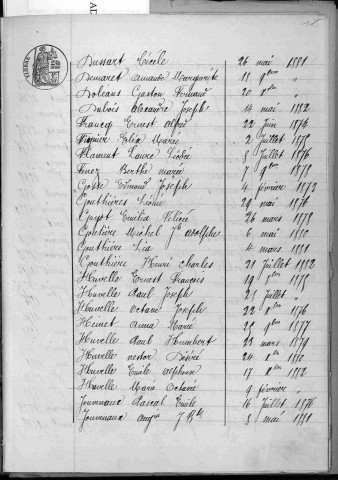 Dussart Cécile 26 mai 1881
Demaret Amanda Marguerite 18 9bre "
Doléans Gaston Fernand 20 Xbre "
Dubois Alexandre Joseph 14 mai 1882
Francq Ernest Alfred 22 Juin 1874
Fournier Célia Marie 2 Juillet 1875
Flament Laure Léodie 8 Juillet 1876
Finez Berthe Marie 7 9bre 1879
Gosse Edmond Joseph 4 février 1873
Gouthières Léonie 29 mai 1876
Guyot Emilia Félicie 26 mars 1879
Goutière Michel Jh Adolphe 6 mai 1880
Gouthière Lia 4 mars 1881
Gouthière Henri Charles 21 Juillet 1882
Huvelle Ernest François 19 9bre 1875
Huvelle Paul Joseph 25 Juillet "
Huvelle Octave Joseph 22 Xbre 1876
Heinet Anna Marie 25 9bre 1877
Huvelle Paul Humbert 22 mars 1879
Huvelle Nestor Désiré 24 Xbre 1880
Huvelle Emile Alphonse 17 Xbre 1882
Huvelle Marie Octavie 9 février "
Jouvenaux Pascal Emile 16 Juillet 1876
Jouvenaux Augte J Bte 8 mai 1881